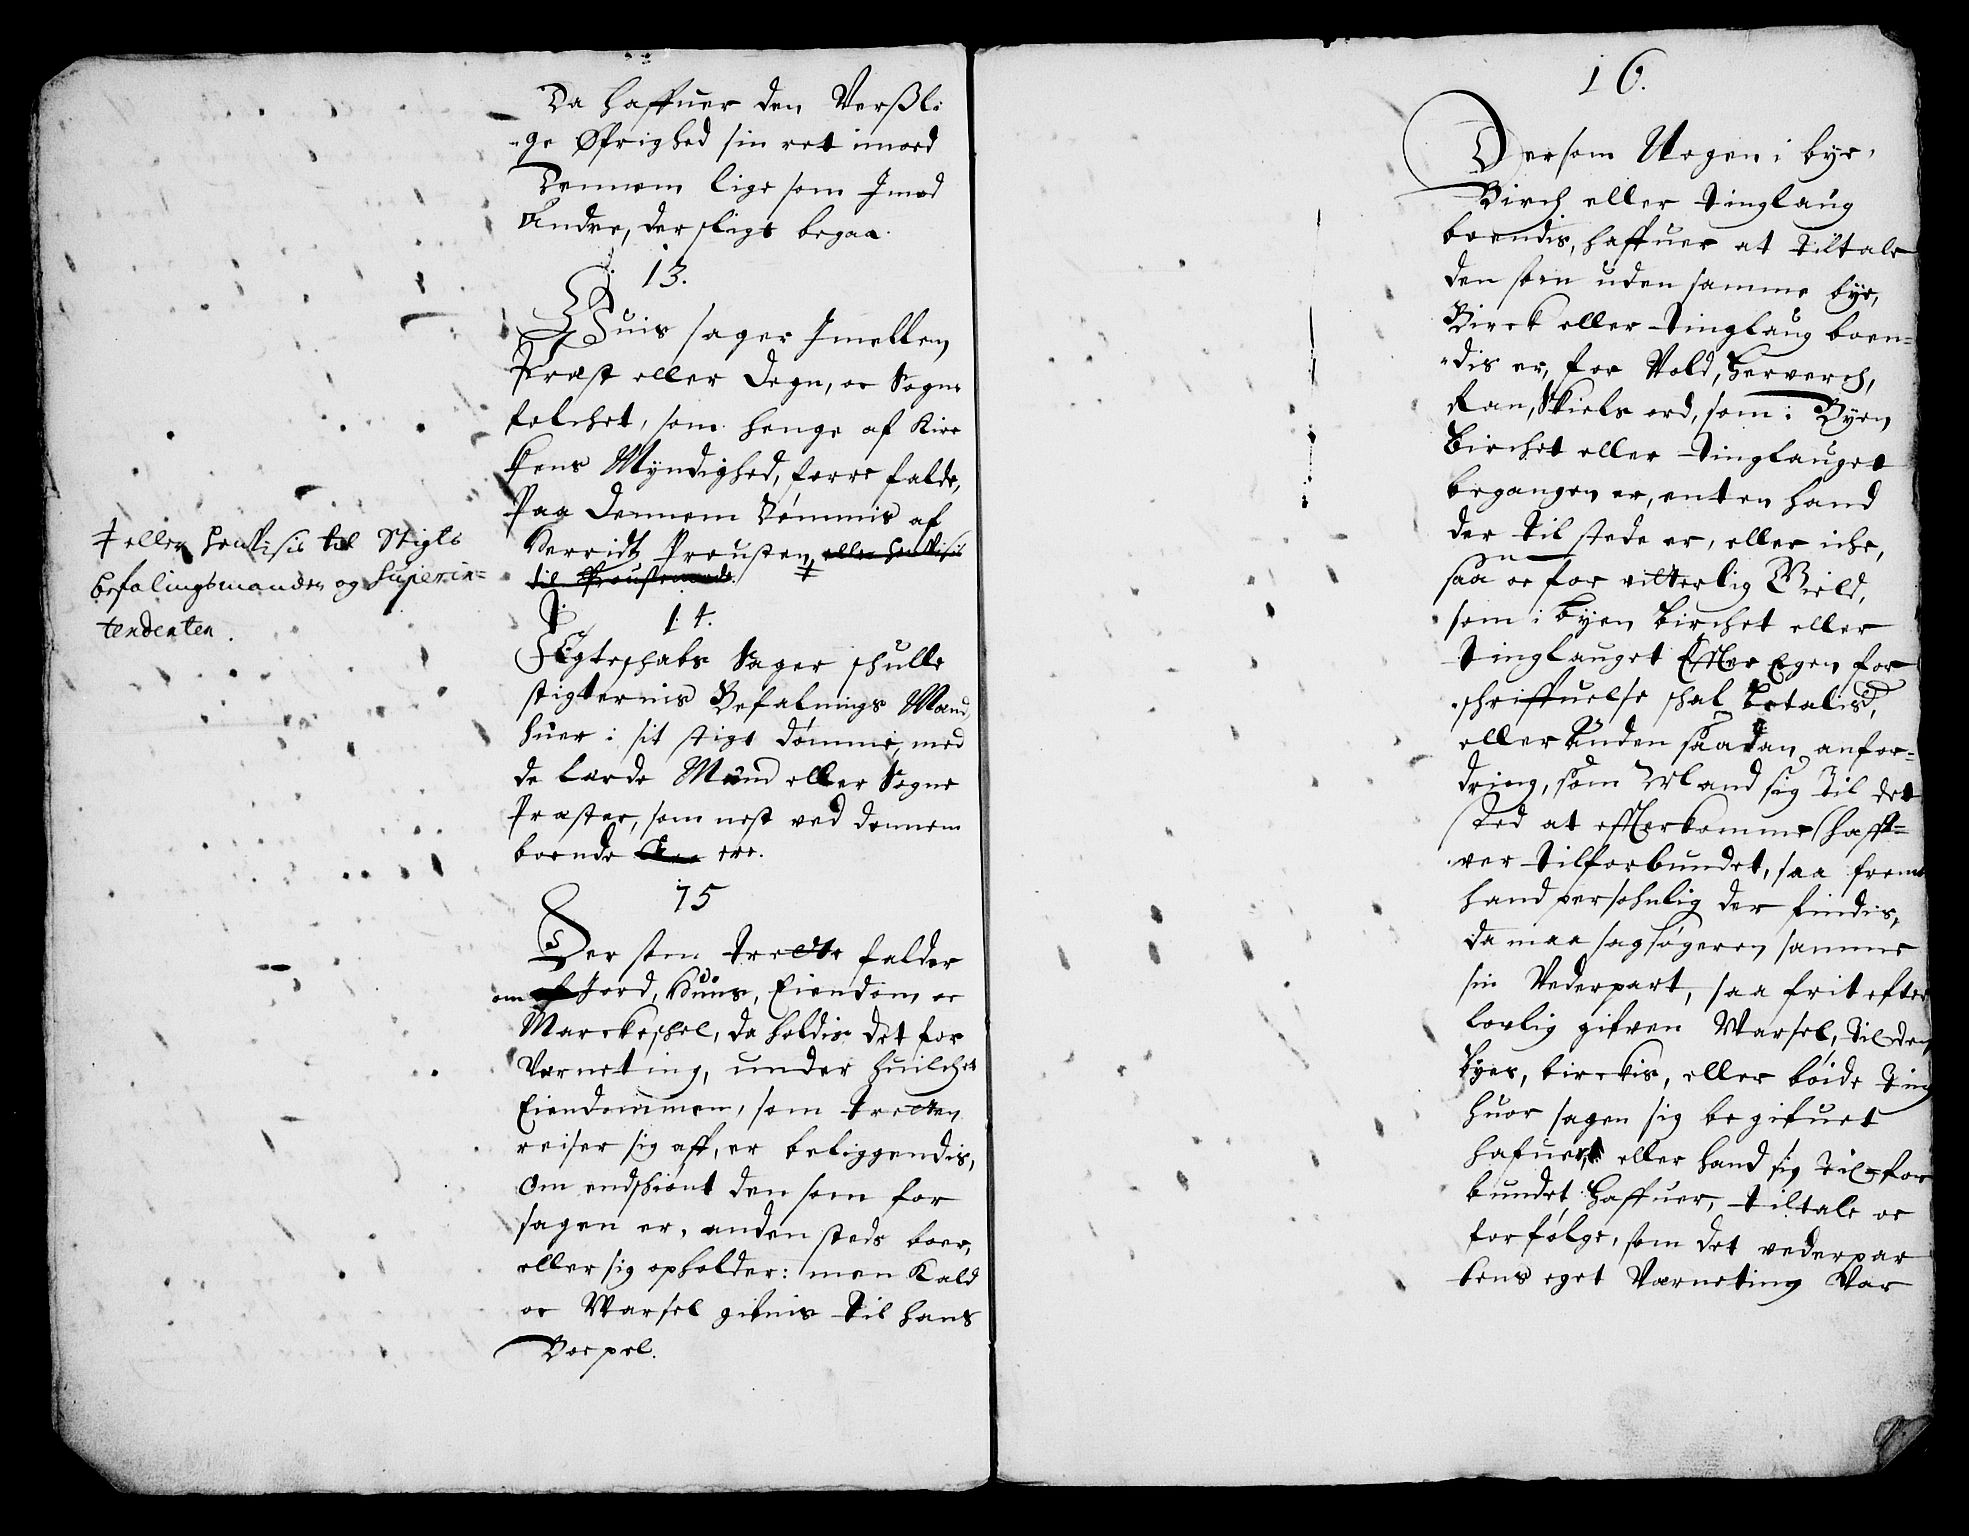 Da haffuer den Verßli
-ge Øfrighed sin ret imod
Dennem lige som Imod
Andre, der sligt begaa.
13.
Huis sager Imellem
Præst eller Degn, oc Sogne
folchet, som henge af Kirc
kens Myndighed, forre falde,
Paa Dennem dømmis af
Herridtz Prousten, ‡ eller henviisis
til Proustemode.
‡ eller henviisis til Stigts
befalingsmanden og Superin=
tendenten.
14.
Egteschabs Sager schulle
stigternis Befalnings Mænd,
huer i sit stigt dømme, med
de Lærde Mænd eller Sogne
Præster, som nest ved dennem
boende ere.
15
Der som trecte falder
om Jord, Huus, Eiendom, oc
Marckeschel, da holdis det for
Værneting, under huilchet
Eiendommen, som trecten
reiser sig aff, er beliggendis,
Om endschiønt den som for
sagen er, anden steds boer,
eller sig opholder: men Kald
oc Warsel gifuis til hans
Boepel.
16.
Dersom Nogen i bye,
Birch eller tinglaug
boendis, haffuer at tiltale
den som uden samme bye,
Birck eller tinglaug boen=
-dis er, for Vold, Herverch,
Ran, Skiels ord, som i Byen,
Birchet eller tinglauget
begangen er, enten hand
der til stede er, eller iche,
saa oc for vitterlig Gield,
som i Byen Birchet eller
tinglauget Effter Egen for
schriffuelse schal betalis,
eller Unden saadan anfor=
dring, som Mand sig til det
sted at effterkomme haff=
ver tilforbundet, saa fremt
hand persohnlig der findis,
da maa sagsøgeren samme
sin Vederpart, saa frit efter
lovlig gifven Warsel, til den
byes, birckis, eller bøide ting
huor sagen sig begifuet
hafuer, eller hand sig til for
bundet haffuer, tiltale oc
forfølge, som det vederpar
tens eget Værneting Var